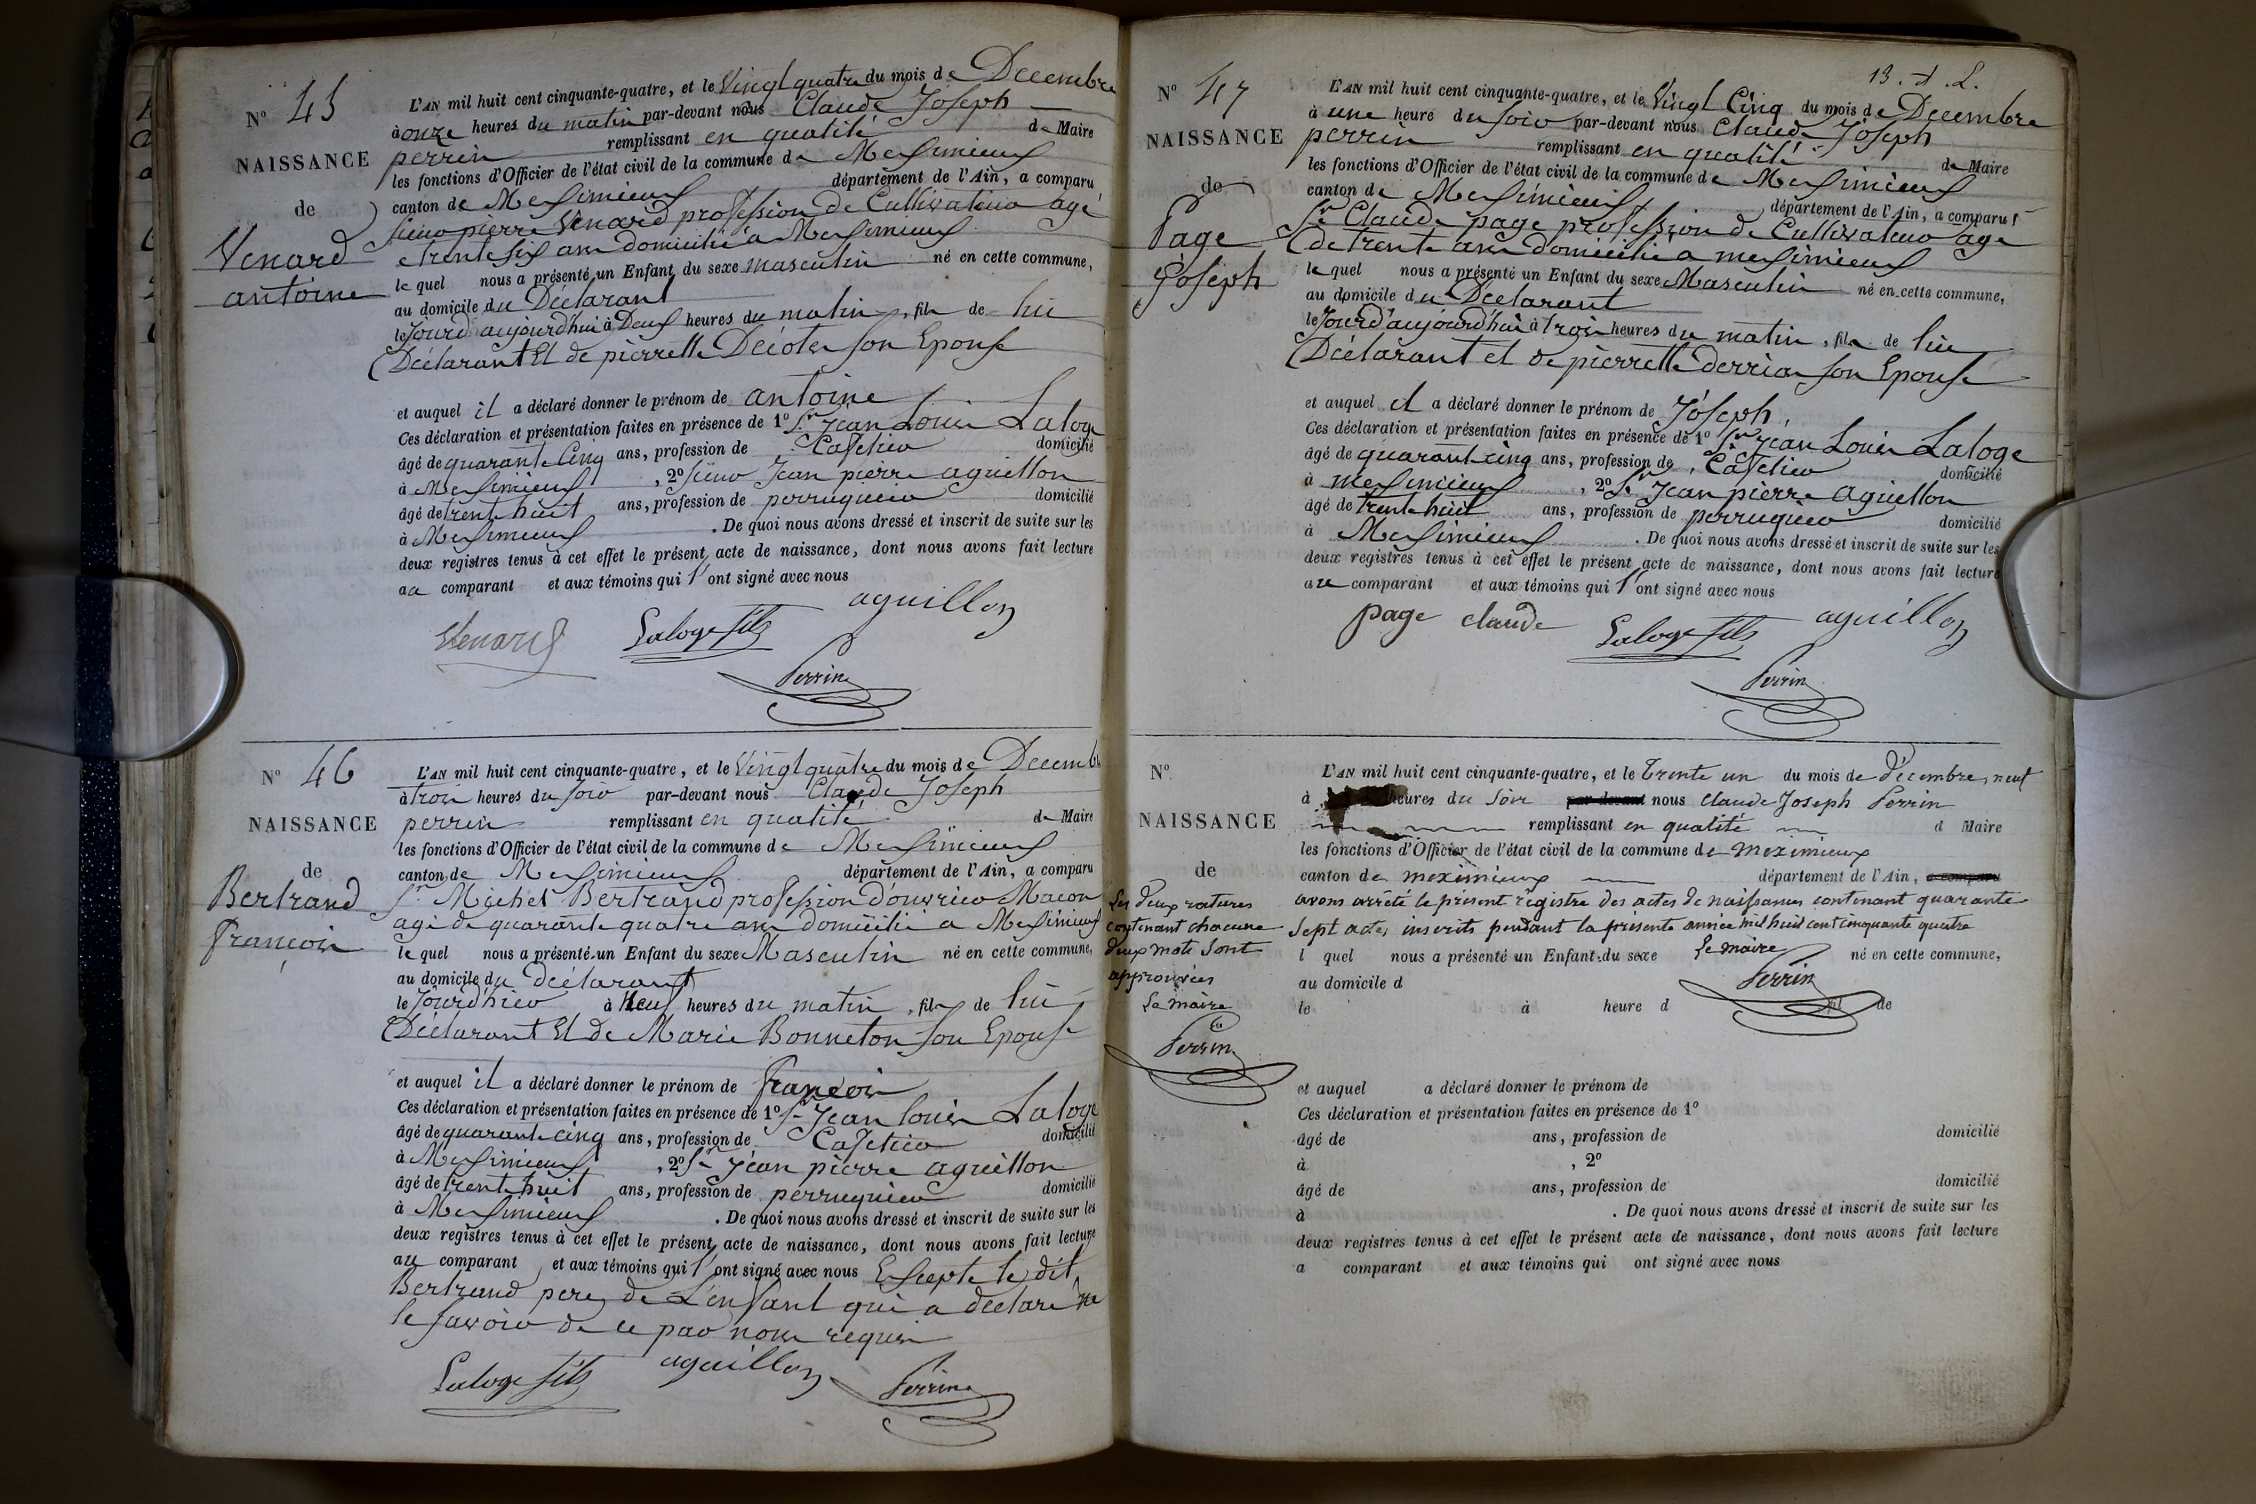 N° 45
NAISSANCE
de
Venard
antoine
L'AN mil huit cent cinquante-quatre, et le Vingt quatre du mois de Decembre
à onze heures du matin par-devant nous Claude Joseph
perrin remplissant en qualité de Maire
les fonctions d'Officier de l'état civil de la commune de Meximieux
canton de Meximieux département de l'Ain, a comparu
sieur pierre Venard profession de Cultivateur agé
trente six ans domicilié a Meximieux
le quel nous a présenté un Enfant du sexe masculin né en cette commune,
au domicile du Déclarant
le Jourd'aujourd'hui à Deux heures du matin, fils de lui
Déclarant Et de pierrette son Epouse
et auquel il a déclaré donner le prénom de antoine
Ces déclaration et présentation faites en présence de 1° Sr Jean Louis Laloge
âgé de quarante Cinq ans, profession de Cafetier domicilié
à Meximieux, 2° sieur Jean pierre aguillon
âgé de trente huit ans, profession de perruquier domicilié
à Meximieux. De quoi nous avons dressé et inscrit de suite sur les
deux registres tenus à cet effet le présent acte de naissance, dont nous avons fait lecture
au comparant et aux témoins qui l'ont signé avec nous
aguillon
Venard Laloge fils
Perrin
N° 46
NAISSANCE
de
Bertrand
françois
L'AN mil huit cent cinquante-quatre, et le Vingt quatre du mois de Decembre
à trois heures du soir par-devant nous Claude Joseph
perrin remplissant en qualité de Maire
les fonctions d'Officier de l'état civil de la commune de Meximieux
canton de Meximieux département de l'Ain, a comparu
Sr Michel Bertrand profession d'ouvrier Macon
agé de quarante quatre ans domicilié a Meximieux
le quel nous a présenté un Enfant du sexe Masculin né en cette commune,
au domicile du déclarant
le Jourd'hier à Neuf heures du matin, fils de lui
Déclarant Et de Marie Bonneton son Epouse
et auquel il a déclaré donner le prénom de françois
Ces déclaration et présentation faites en présence de 1° Sr Jean louis Laloge
âgé de quarante cinq ans, profession de Cafetier domicilié
à Meximieux, 2° Sr Jean pierre aguillon
âgé de trente huit ans, profession de perruquier domicilié
à Meximieux. De quoi nous avons dressé et inscrit de suite sur les
deux registres tenus à cet effet le présent acte de naissance, dont nous avons fait lecture
au comparant et aux témoins qui l'ont signé avec nous Excepté le dit
Bertrand pere de L'enfant qui a declaré ne
le savoir de ce par nous requis
Laloge fils aguillon Perrin
13. L.
N° 47
NAISSANCE
de
Page
Joseph
L'AN mil huit cent cinquante-quatre, et le Vingt Cinq du mois de Decembre
à une heure du soir par-devant nous Claude Joseph
perrin remplissant en qualité de Maire
les fonctions d'Officier de l'état civil de la commune de Meximieux
canton de Meximieux département de l'Ain, a comparu
Sr Claude page profession de Cultivateur age
de trente ans domicilié a meximieux
le quel nous a présenté un Enfant du sexe Masculin né en cette commune,
au domicile du Déclarant
le Jourd'aujourd'hui à trois heures du matin, fils de lui
Déclarant et de pierrette son Epouse
et auquel il a déclaré donner le prénom de Joseph
Ces déclaration et présentation faites en présence de 1° Sr Jean Louis Laloge
âgé de quarante cinq ans, profession de Cafetier domicilié
à meximieux, 2° Sr Jean pierre aguillon
âgé de trente huit ans, profession de perruquier domicilié
à Meximieux. De quoi nous avons dressé et inscrit de suite sur les
deux registres tenus à cet effet le présent acte de naissance, dont nous avons fait lecture
au comparant et aux témoins qui l'ont signé avec nous
page claude Laloge fils aguillon
Perrin
N°
NAISSANCE
de
Les deux ratures
contenant chacune
deux mots sont
approuvées
Le maire
Perrin
L'AN mil huit cent cinquante-quatre, et le trente un du mois de décembre, neuf
à heures du soir par-devant nous Claude Joseph Perrin
remplissant en qualité d Maire
les fonctions d'Officier de l'état civil de la commune de meximieux
canton de meximieux département de l'Ain, a comparu
avons arrêté le présent régistre des actes de naissances contenant quarante
sept actes inscrits pendant la présente année mil huit cent cinquante quatre
l quel nous a présenté un Enfant du sexe Le maire né en cette commune,
au domicile d Perrin
le à heure d fil de
et auquel a déclaré donner le prénom de
Ces déclaration et présentation faites en présence de 1°
âgé de ans, profession de domicilié
à , 2°
âgé de ans, profession de domicilié
à . De quoi nous avons dressé et inscrit de suite sur les
deux registres tenus à cet effet le présent acte de naissance, dont nous avons fait lecture
a comparant et aux témoins qui ont signé avec nous